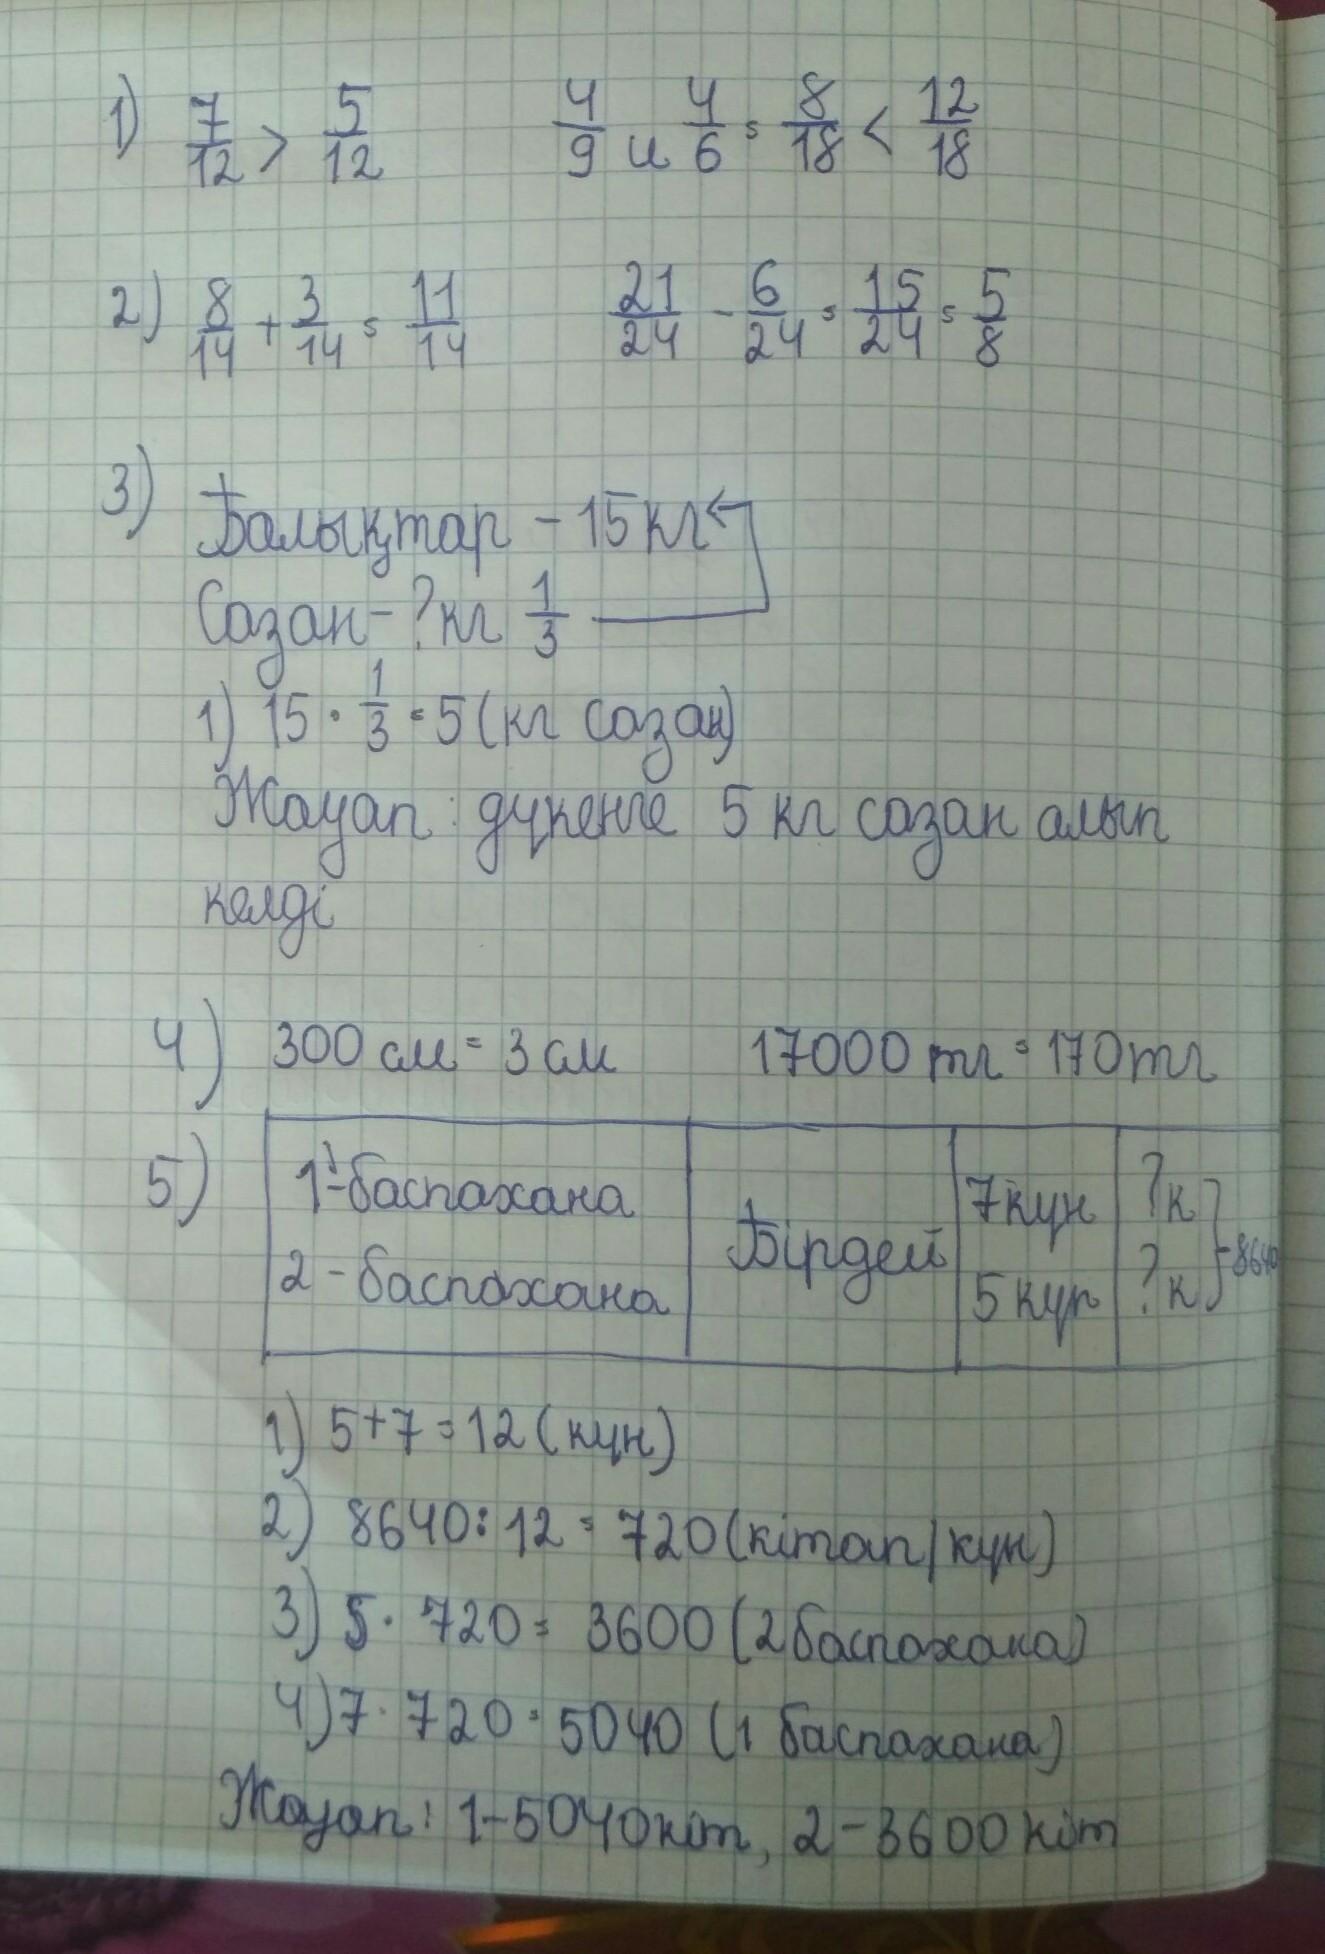 1) 7/12 > 5/12    4/9 и 4/6 = 8/18 < 12/18
2) 8/14 + 3/14 = 11/14    21/24 - 6/24 = 15/24 = 5/8
3) Балықтар - 15 кг
Сазан - ? кг 1/3
1) 15 · 1/3 = 5 (кг сазан)
Жауап: дүкенге 5 кг сазан алып
келді
4) 300 см = 3 см    17000 тг = 170 тг
5) 1-баспахана    Бірдей    7 күн    ? к } - 8640
2 - баспахана    5 күн    ? к
1) 5+7=12 (күн)
2) 8640:12 = 720 (кітап/күн)
3) 5 · 720 = 3600 (2 баспахана)
4) 7 · 720 = 5040 (1 баспахана)
Жауап: 1-5040 кіт, 2-3600 кіт